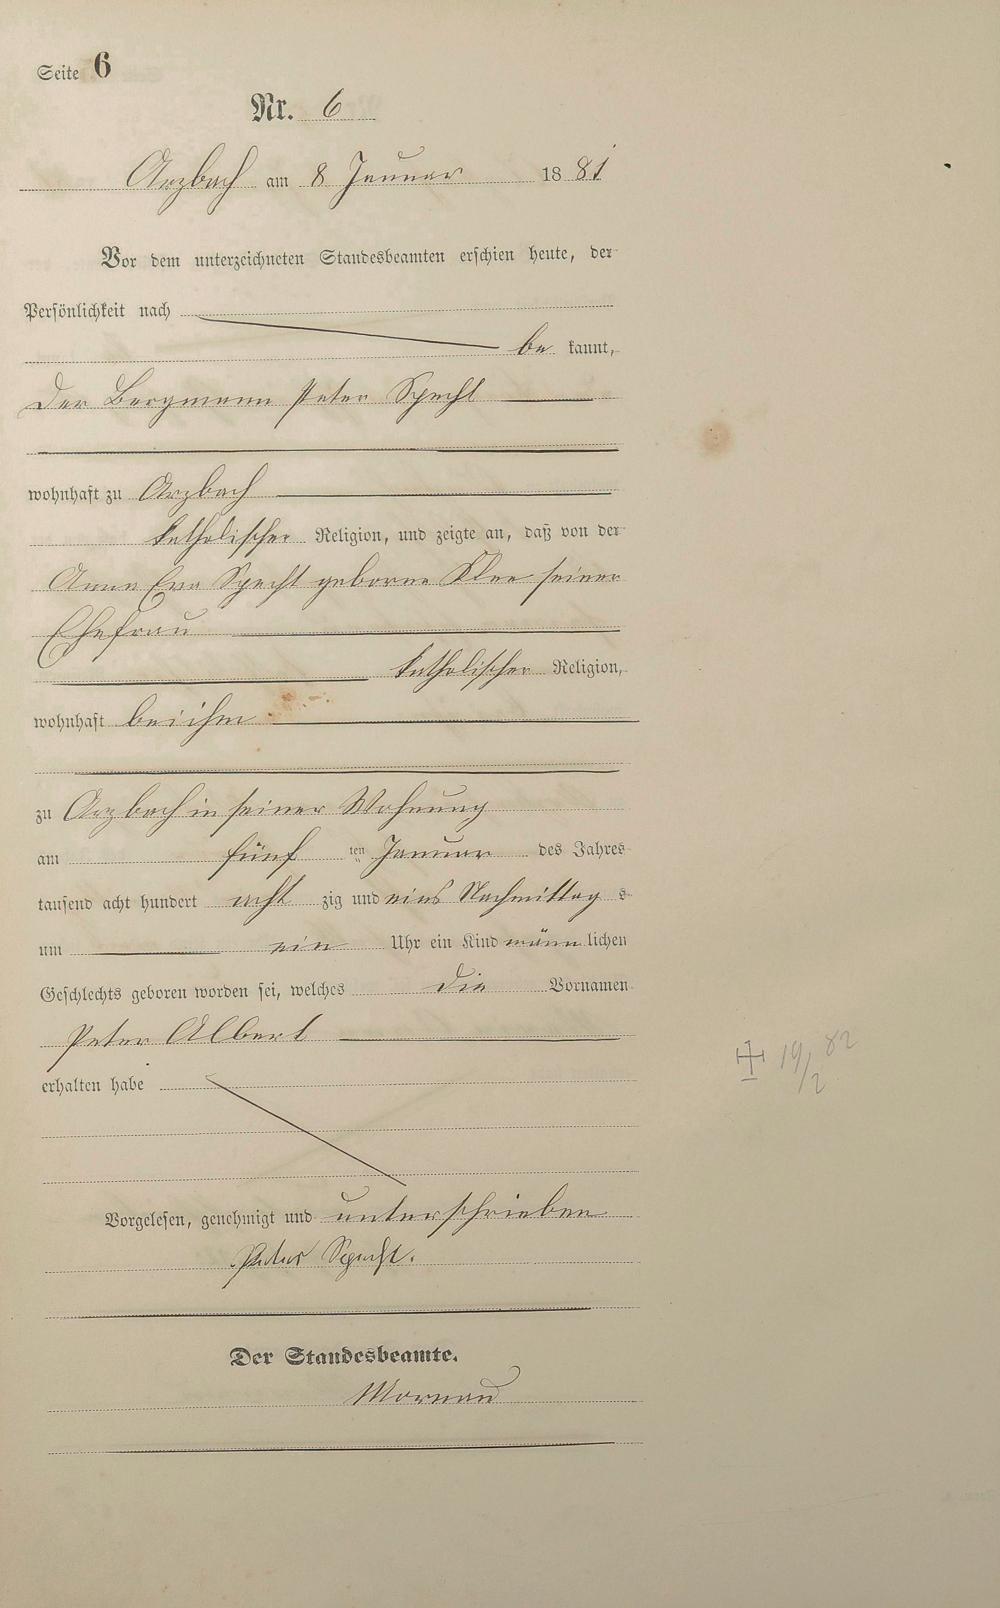 Seite 6
Nr. 6
Arzbach am 8 Januar 1881
Vor dem unterzeichneten Standesbeamten erschien heute, der
Persönlichkeit nach
be kannt,
Der Bergmann Peter Specht
wohnhaft zu Arzbach
katholischer Religion, und zeigte an, daß von der
Anna Eva Specht geborne Klee seiner
Ehefrau
katholischer Religion,
wohnhaft bei ihm
zu Arzbach in seiner Wohnung
am fünf ten Januar des Jahres
tausend acht hundert acht zig und eins Nachmittag s
um ein Uhr ein Kind männ lichen
Geschlechts geboren worden sei, welches die Vornamen
Peter Albert
erhalten habe
Vorgelesen, genehmigt und unterschrieben
Peter Specht.
Der Standesbeamte.
19/2 82